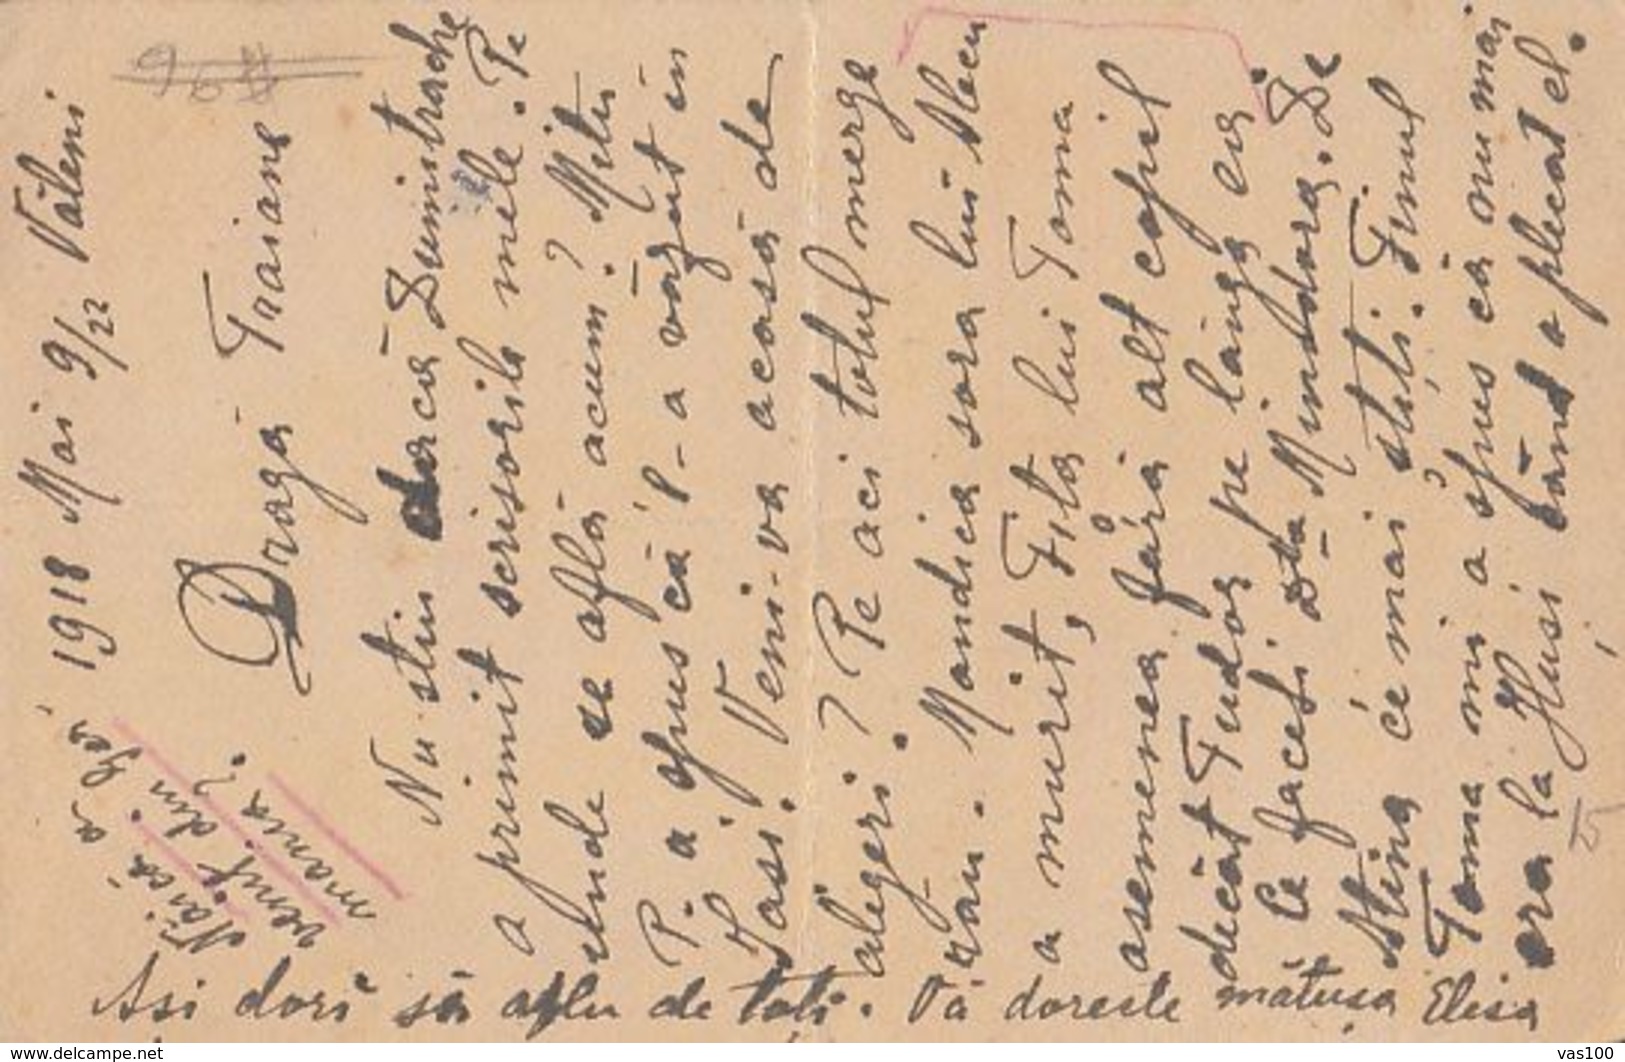 1918 Mai 9/22 Văleni
Dragă Traiane
Nu stiu dacă Dumitrache
a primit scrisorile mele. Pe
unde se află acum? Mitu
P. a spus că l-a văzut în
Iasi. Veni-va acasă de
alegeri? Pe aci totul merge
rău. Mondica sora lui Alecu
a murit, Fita lui Toma
asemenea fără alt copil
decât Tudor pe lângă ea
Ce faceti Dta Mundora. De
Stina ce mai știți. Finul
Toma mi a spus că nu mai
era la Husi când a plecat el.
Asi dori să aflu de toți. Vă doreste mătușa Elisa
Năică a
venit din Ger
mania?
968
15
delcampe.net
vas100